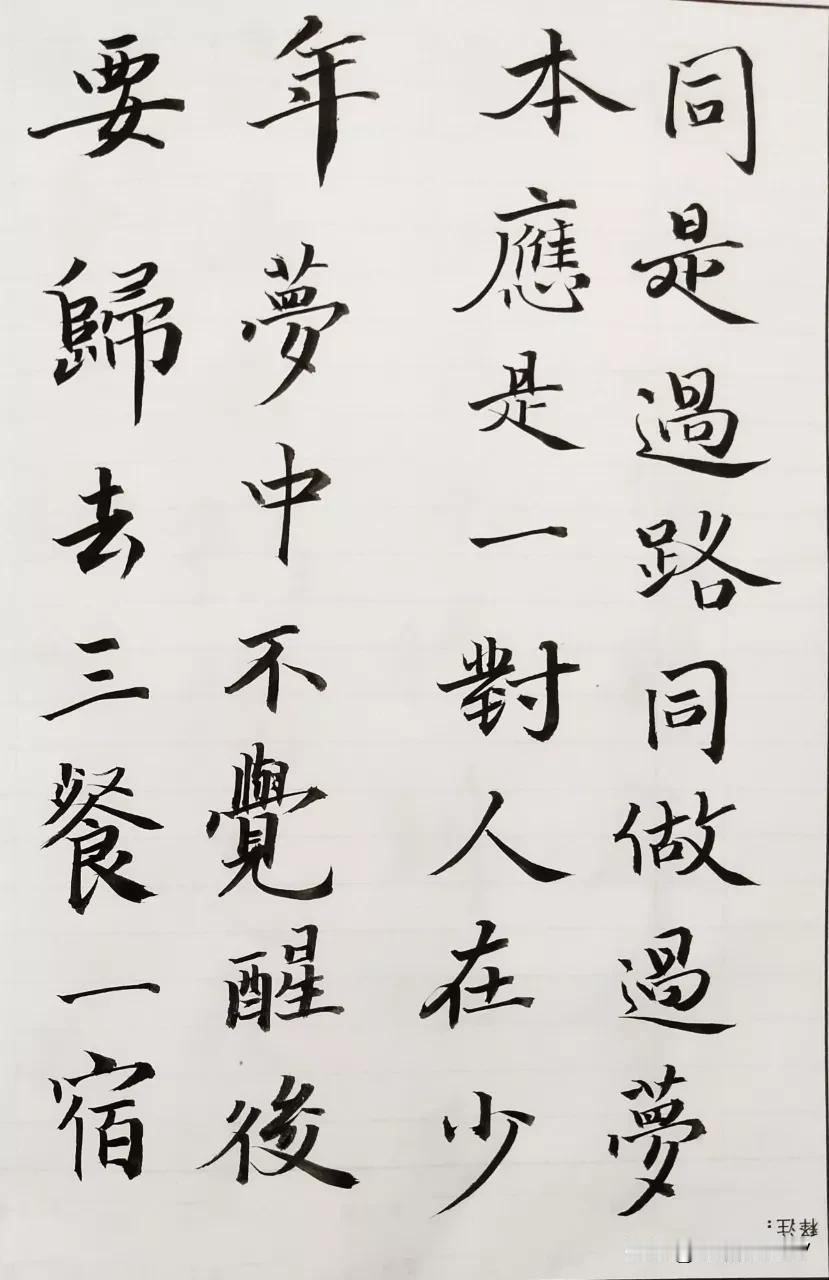 同是過路同做過夢
本應是一對人在少
年夢中不覺醒後
要歸去三餐一宿
释注：